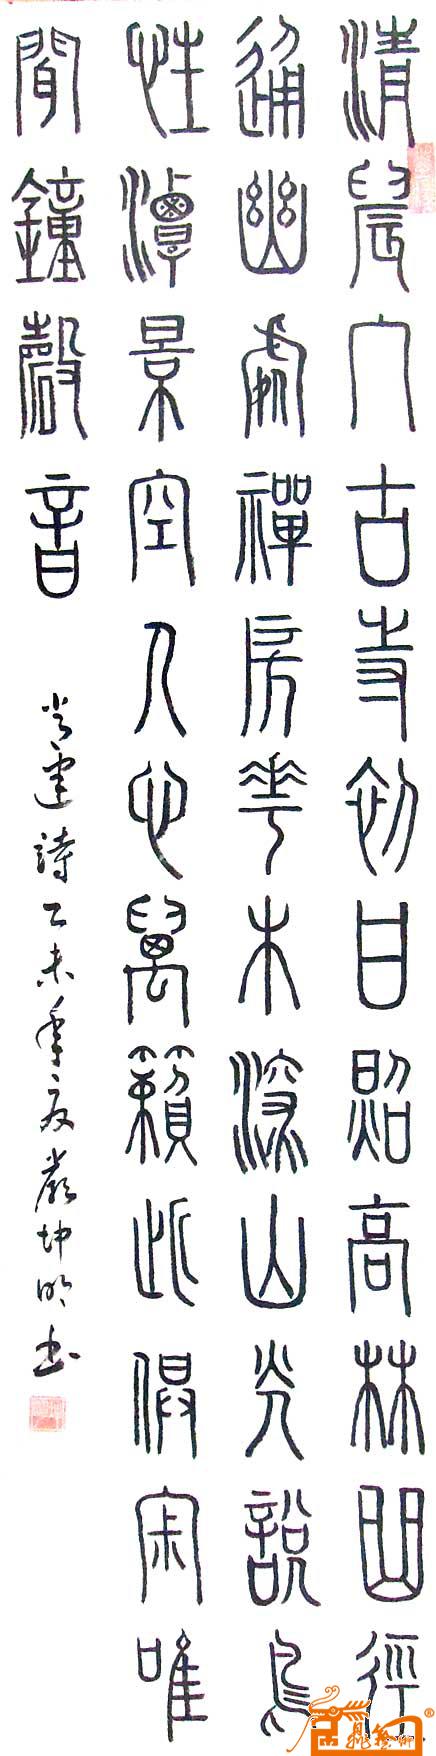 清晨入古寺初日照高林曲徑
通幽處禪房華木深山光說鳥
性潭景空人心萬籟此俱寂唯
聞鐘磬音
常建詩乙未年夏嚴坤明書